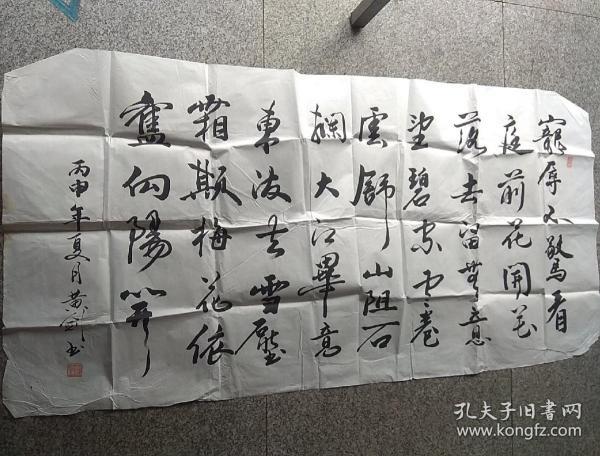 寵辱不驚看
庭前花開花
落去留無意
望碧空雲卷
雲舒山阻石
攔大江畢竟
東流去雪壓
霜欺梅花依
舊向陽笑
丙申年夏月黄書
孔夫子旧書网
www.kongfz.com